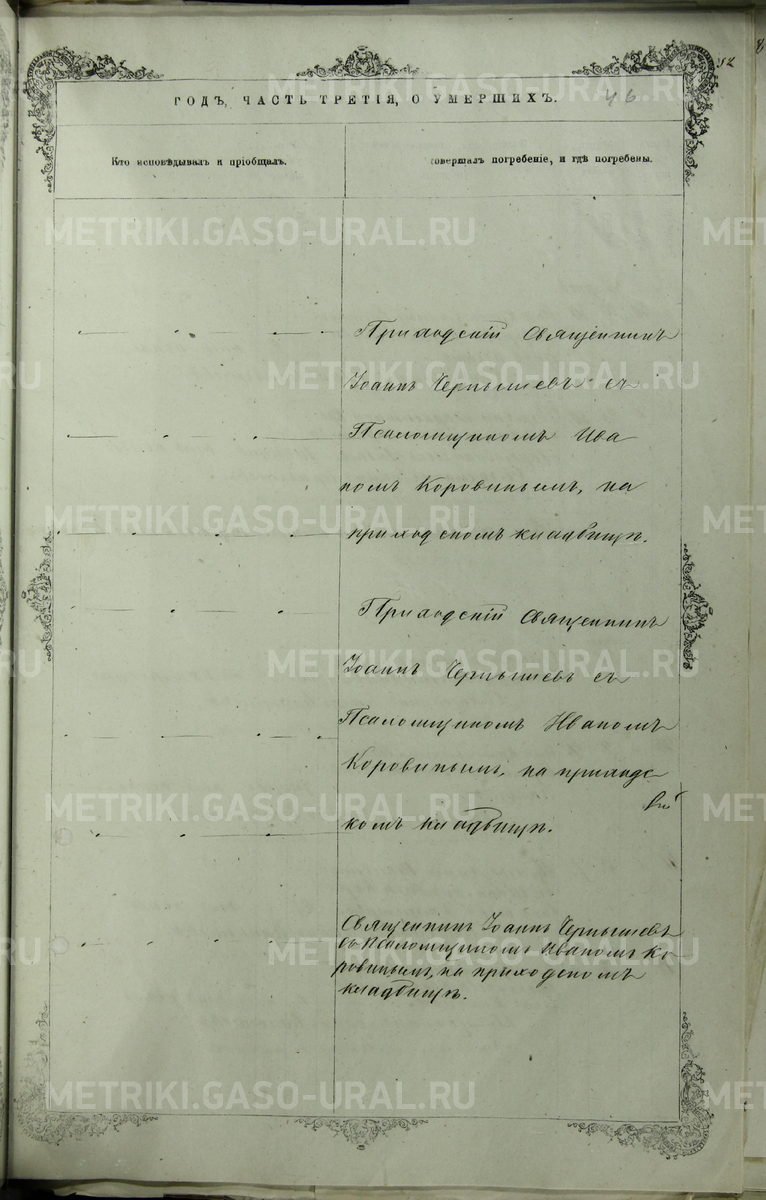 ГОДЪ, ЧАСТЬ ТРЕТІЯ, О УМЕРШИХЪ. 46
Кто исповѣдывалъ и пріобщалъ.
совершалъ погребеніе, и гдѣ погребены.
Приходскій Священникъ
Іоаннъ Чернышевъ съ
Псаломщикомъ Ива
номъ Коровинымъ, на
приходскомъ кладбищѣ.
Приходскій Священникъ
Іоаннъ Чернышевъ съ
Псаломщикомъ Иваномъ
Коровинымъ, на приходс
комъ кладбищѣ.
Священникъ Іоаннъ Чернышевъ
съ Псаломщикомъ Иваномъ Ко
ровинымъ, на приходскомъ
кладбищѣ.
METRIKI.GASO-URAL.RU